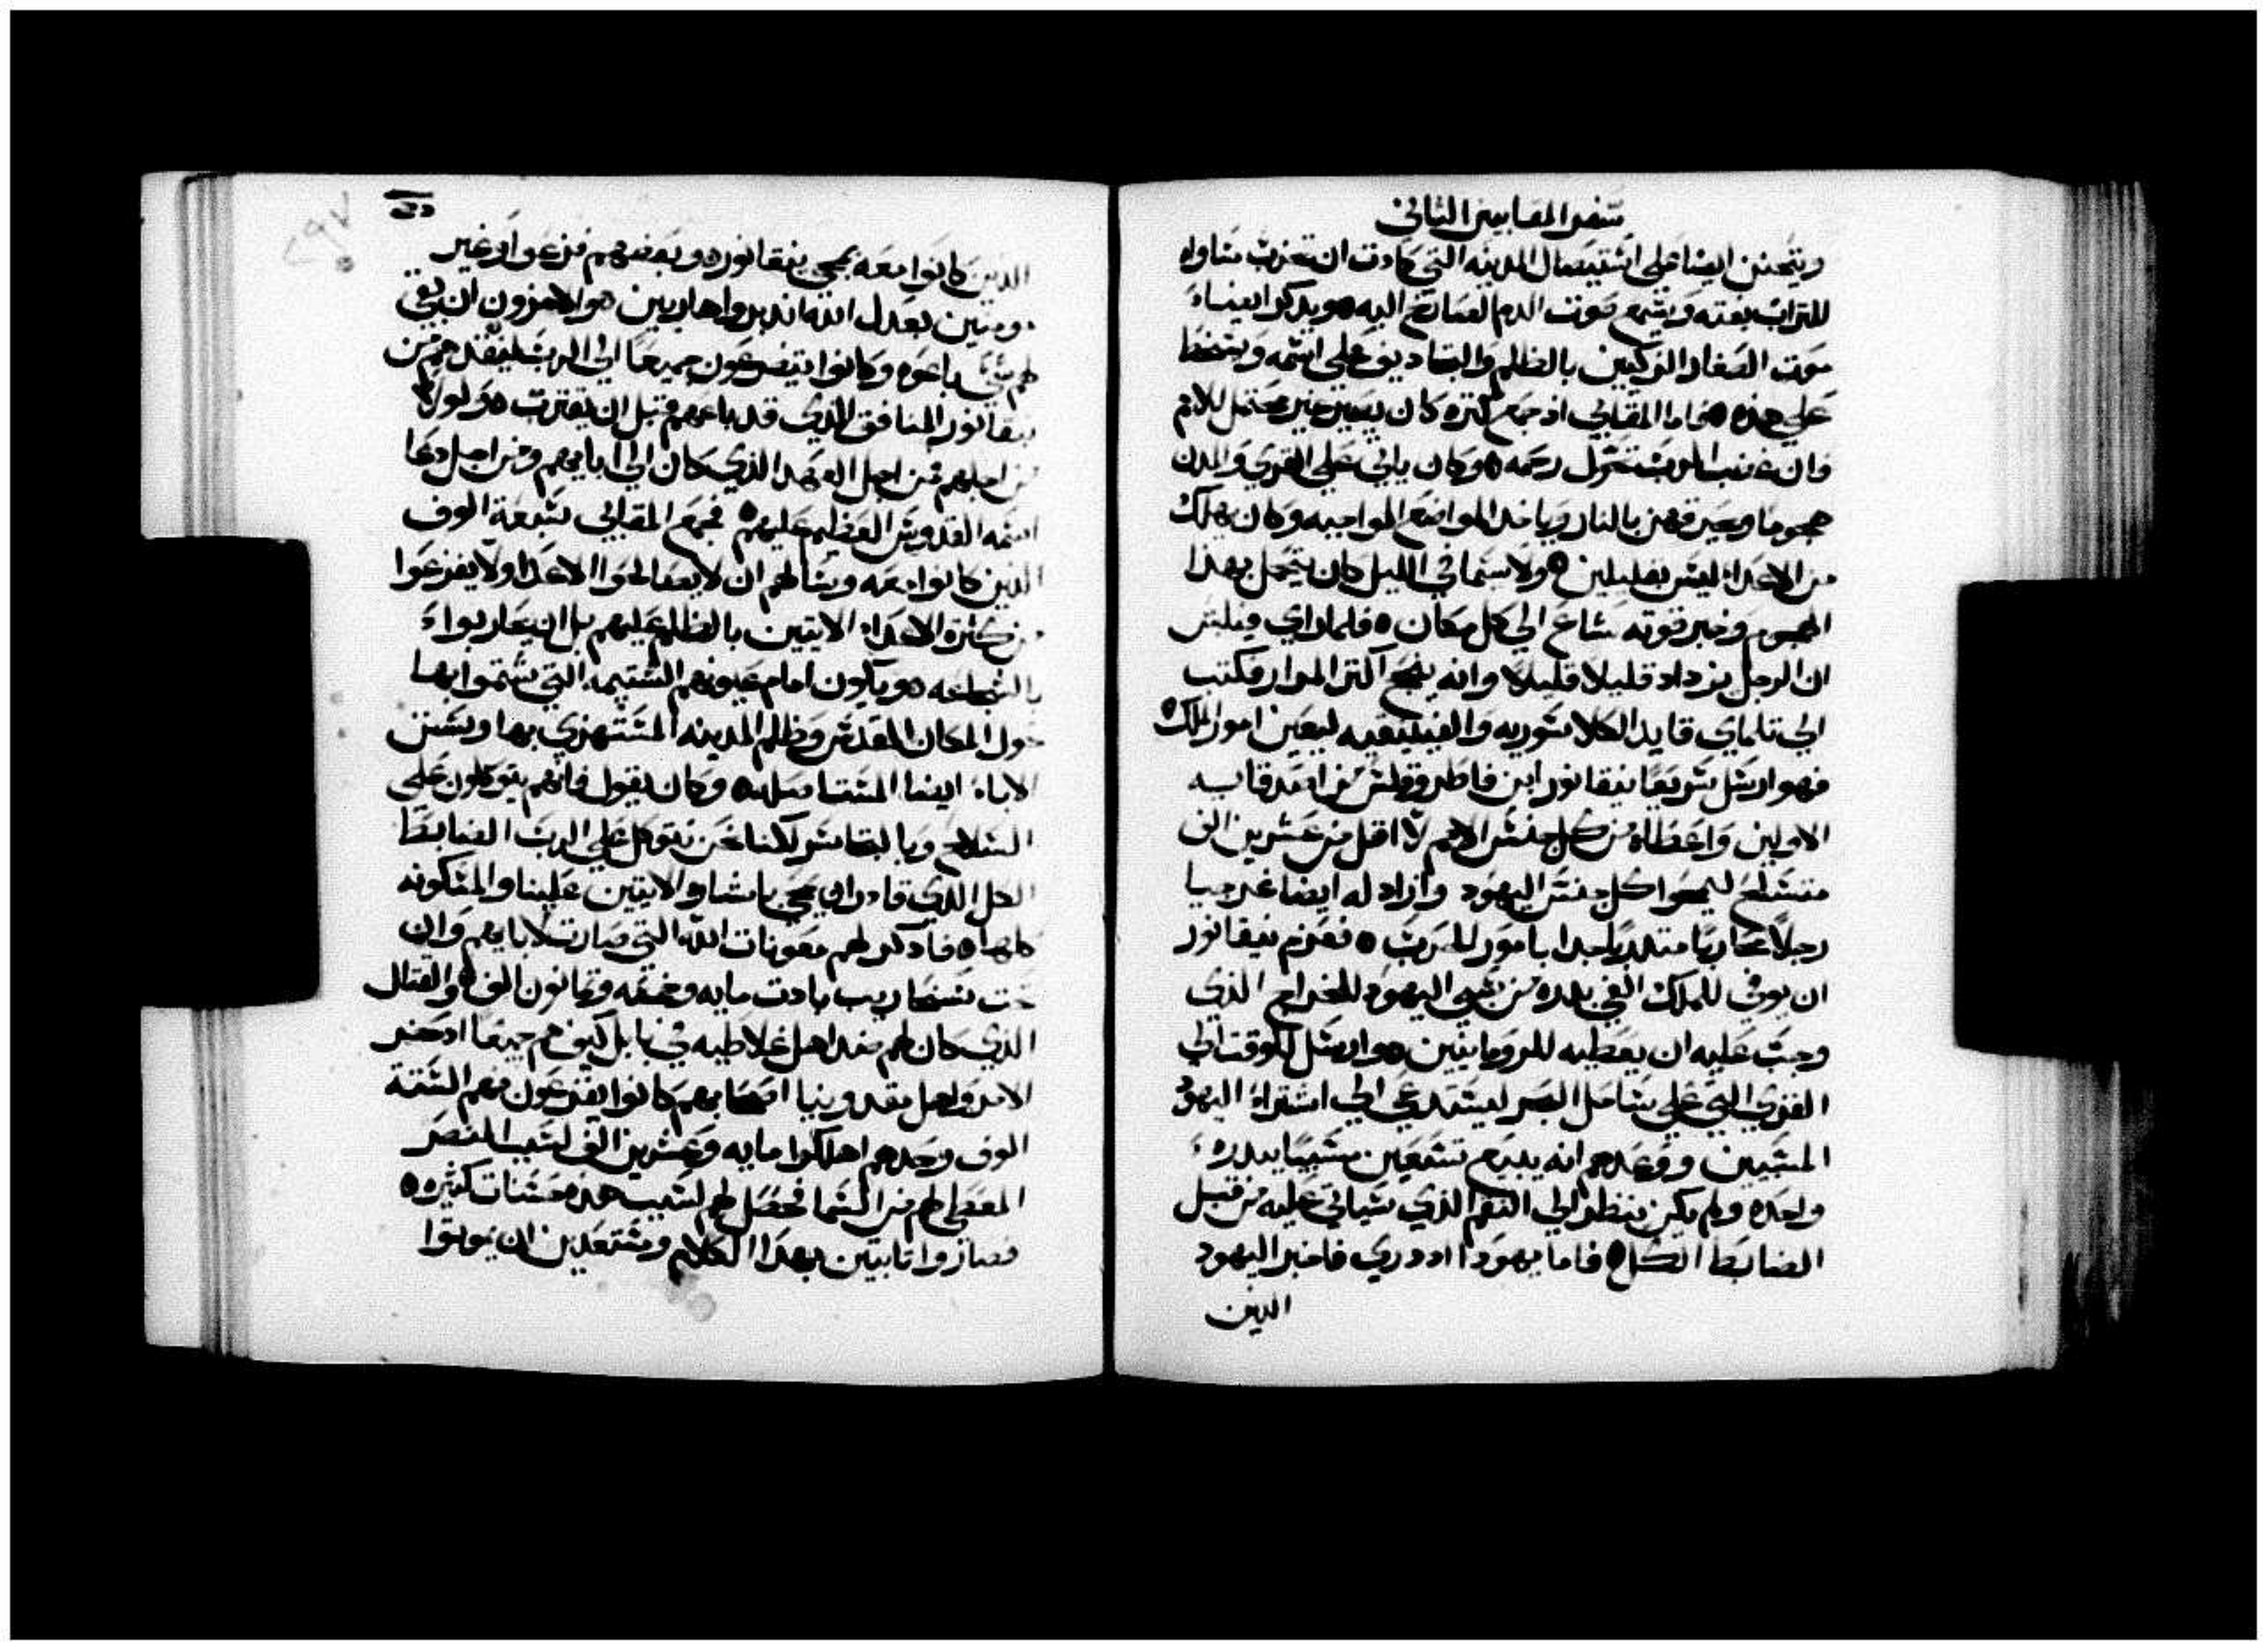 سفر المقابيين الثاني
ويتحنن ايضا علي استيصال المدينه التي كادت ان تخرب مساواه
للتراب بغته ويسمع صوت الدم الصارخ اليه ٥ ويدكر ايضاء
موت الصغار الزكيين بالظلم والتجاديف علي اسمه ويسخط
علي هذه ٥ فاما المقابي اذ جمع كتره كان يصير غير محتمل للامم
وان غضب الرب تحول رحمه ٥ وكان ياتي علي القري والمدن
هجوما ويحرقهن بالنار وياخد المواضع المواجبه وكان يهلك
من الاعداء ليس بقليلين ٥ ولا سيما في الليل كان يتحمل بهذا
الهجوم وخبر قوته شاع الي كل مكان ٥ فلما راي فيلبس
ان الرجل يزداد قليلا قليلا وانه ينجح اكتر المرار فكتب
الي تلماي قايد الكلا سوريه والفينيقيه ليعين امور الملك ٥
فهو ارسل سريعا نيقانور ابن فاطروقلس من اصدقايه
الاولين واعطاه من كل جنس الامم لا اقل من عشرين الف
متسلح ليمحوا كل جنس اليهود وازاد له ايضا غرجيا
رجلا محاربا متدربا جدا بامور للحرب ٥ فعزم نيقانور
ان يوفي للملك الفي بدره من سبي اليهود للخراج الذي
وجب عليه ان يعطيه للرومانيين ٥ وارسل للوقت الي
القري التي علي ساحل البحر ليستدعي الي اشتراء اليهود
المسبيين ووعدهم انه يبيع تسعين مسبيا ببدرهء
واحده ولم يكن ينظر الي النقم الذي سياتي عليه من قبل
الضابط الكل ٥ فاما يهودا اد دري فاخبر اليهود
الدين
الدين كانوا معه بمجي نيقانور ٥ وبعضهم فزعوا وغير
مومنين بعدل الله اندبروا هاربين ٥ والاخرون ان بقي
لهم شي باعوه وكانوا يتضرعون جميعا الي الرب لينقدهم من
نيقانور المنافق الذي قد باعهم قبل ان يقترب ٥ ولولا
من اجلهم فمن اجل العهد الذي كان الي ابايهم ومن اجل دعا
اسمه القدوس العظيم عليهم ٥ فجمع المقابي سبعة الوف
الدين كانوا معه وسالهم ان لا يصالحوا الاعدا ولا يفزعوا
من كثرة الاعداء الاتيين بالظلم عليهم بل ان يحاربواء
بالشجاعه ٥ ويكون امام عيونهم الشتيمه التي شتموا بها
حول المكان المقدس وظلم المدينه المستهزي بها وسنن
الاباء ايضا المستاصله ٥ وكان يقول فانهم يتوكلون علي
السلاح وبالتجاسر لكنا نحن نتوكل علي الرب الضابط
الكل الذي قادر ان يمحي باشاره الاتيين علينا والمسكونه
كلها ٥ فادكر لهم معونات الله التي صارت لابايهم وان
تحت سنحاريب بادت مايه وخمسه وثمانون الف ٥ والقتال
الذي كان لهم ضد اهل غلاطيه في بابل كيف هم جميعا اد حضر
الامر واهل مقدونيا اصحابهم كانوا يفزعون فهم الستة
الوف وحدهم اهلكوا مايه وعشرين الف لسبب النصر
المعطي لهم من السما فحصل لهم لسبب هذه حسنات كثيره ٥
فصاروا تابتين بهدا الكلام ومستعدين ان يموتوا